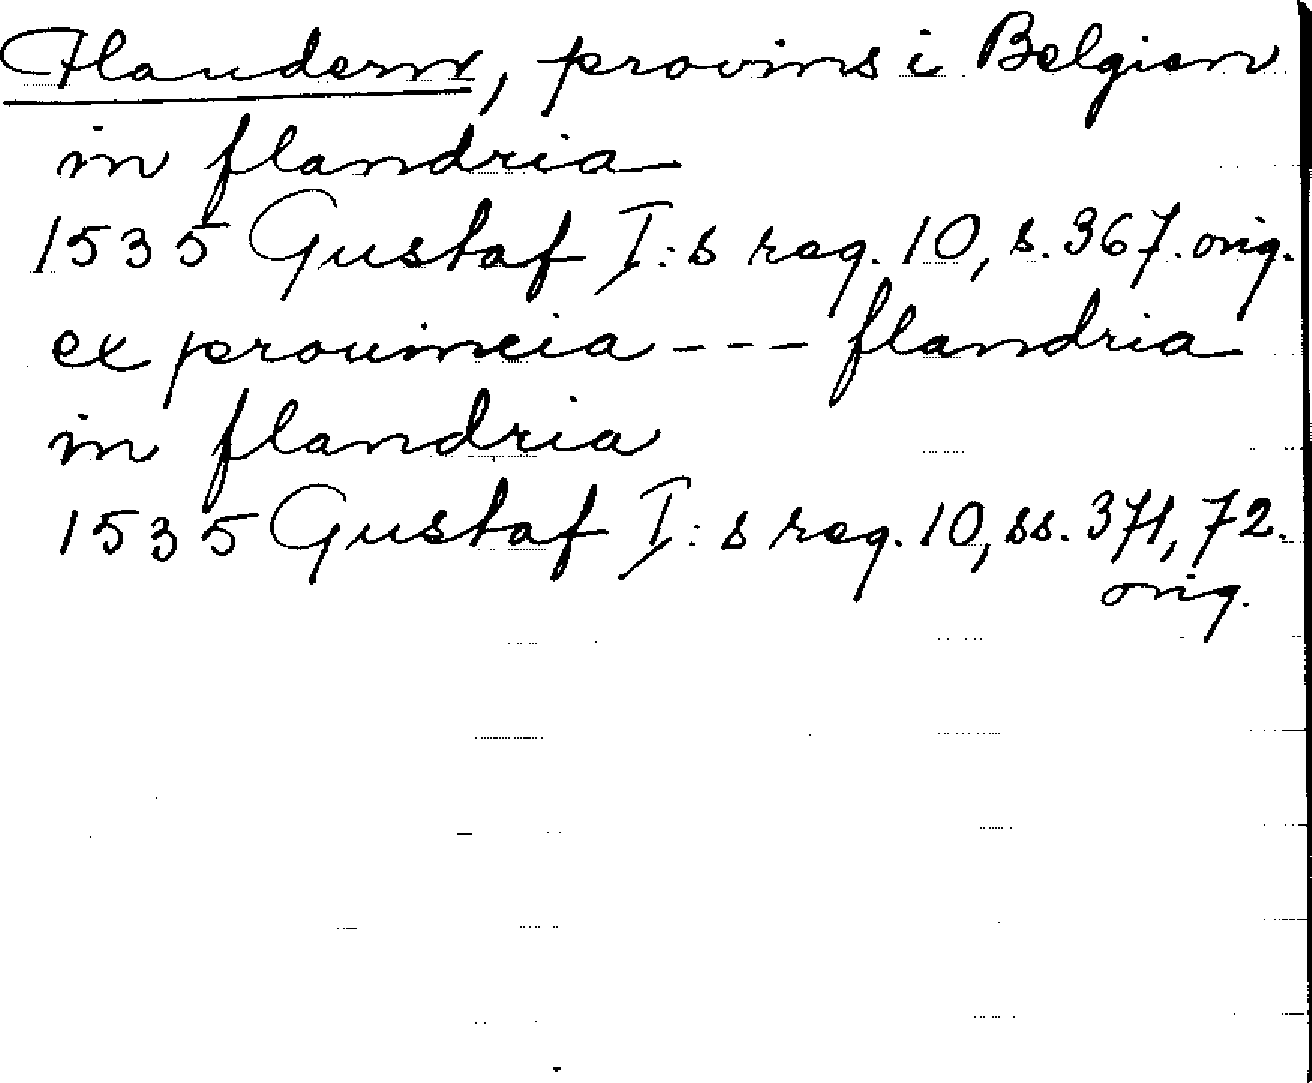 Flandern, provins i Belgien
in flandria
1535 Gustaf I:s reg. 10, s. 367. orig.
ex prouincia --- flandria
in flandria
1535 Gustaf I:s reg. 10, ss. 371, 72.
orig.